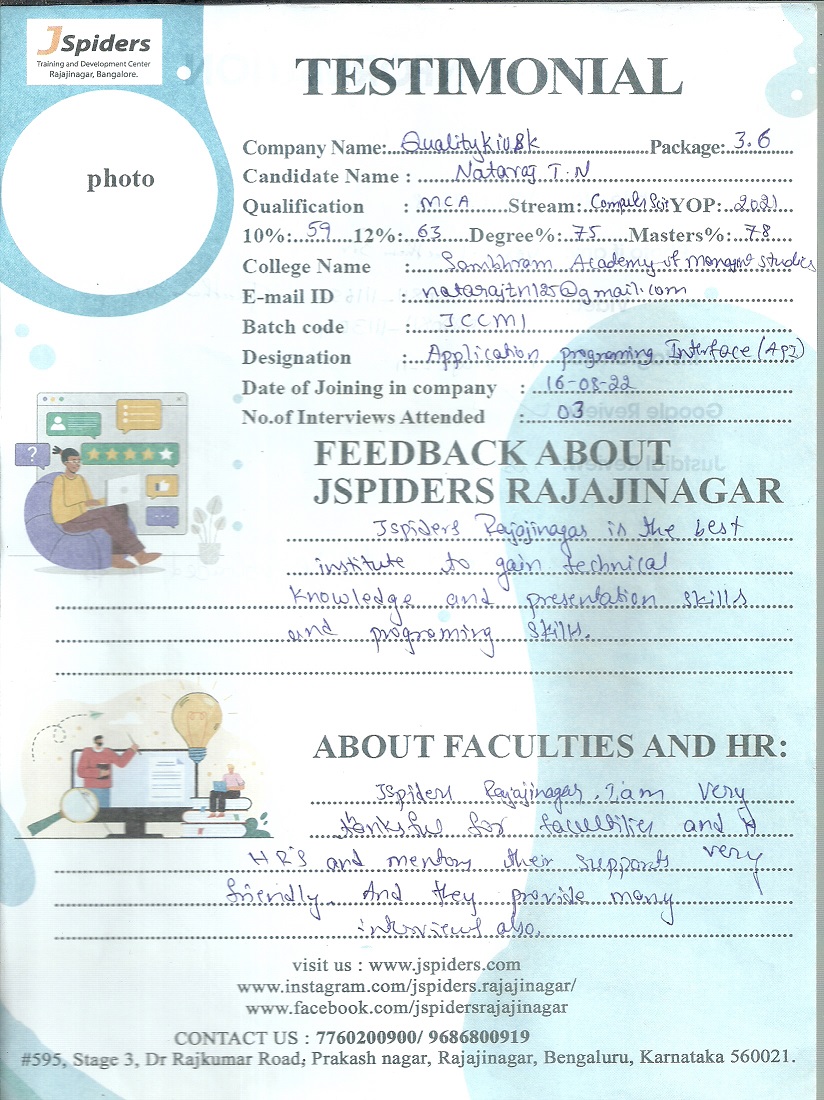 JSpiders
Training and Development Center
Rajajinagar, Bangalore.
TESTIMONIAL
photo
Company Name: QualityKiosk Package: 3.6
Candidate Name : Nataraj T.N
Qualification : MCA Stream: YOP: 2021
10%: 59 12%: 63 Degree%: 75 Masters%: 78
College Name : Sambhram Academy of studies
E-mail ID : natarajtn125@gmail.com
Batch code : JCCM1
Designation : Application programing Interface (API)
Date of Joining in company : 16-08-22
No.of Interviews Attended : 03
?
FEEDBACK ABOUT
JSPIDERS RAJAJINAGAR
Jspiders Rajajinagar is the best
institute to gain technical
knowledge and presentation skills
and programing skills.
ABOUT FACULTIES AND HR:
JSpiders Rajajinagar. I am very
for and
HR'S and mentors their supports very
friendly. And they provide many
interviews also.
visit us : www.jspiders.com
www.instagram.com/jspiders.rajajinagar/
www.facebook.com/jspidersrajajinagar
CONTACT US : 7760200900/ 9686800919
#595, Stage 3, Dr Rajkumar Road, Prakash nagar, Rajajinagar, Bengaluru, Karnataka 560021.